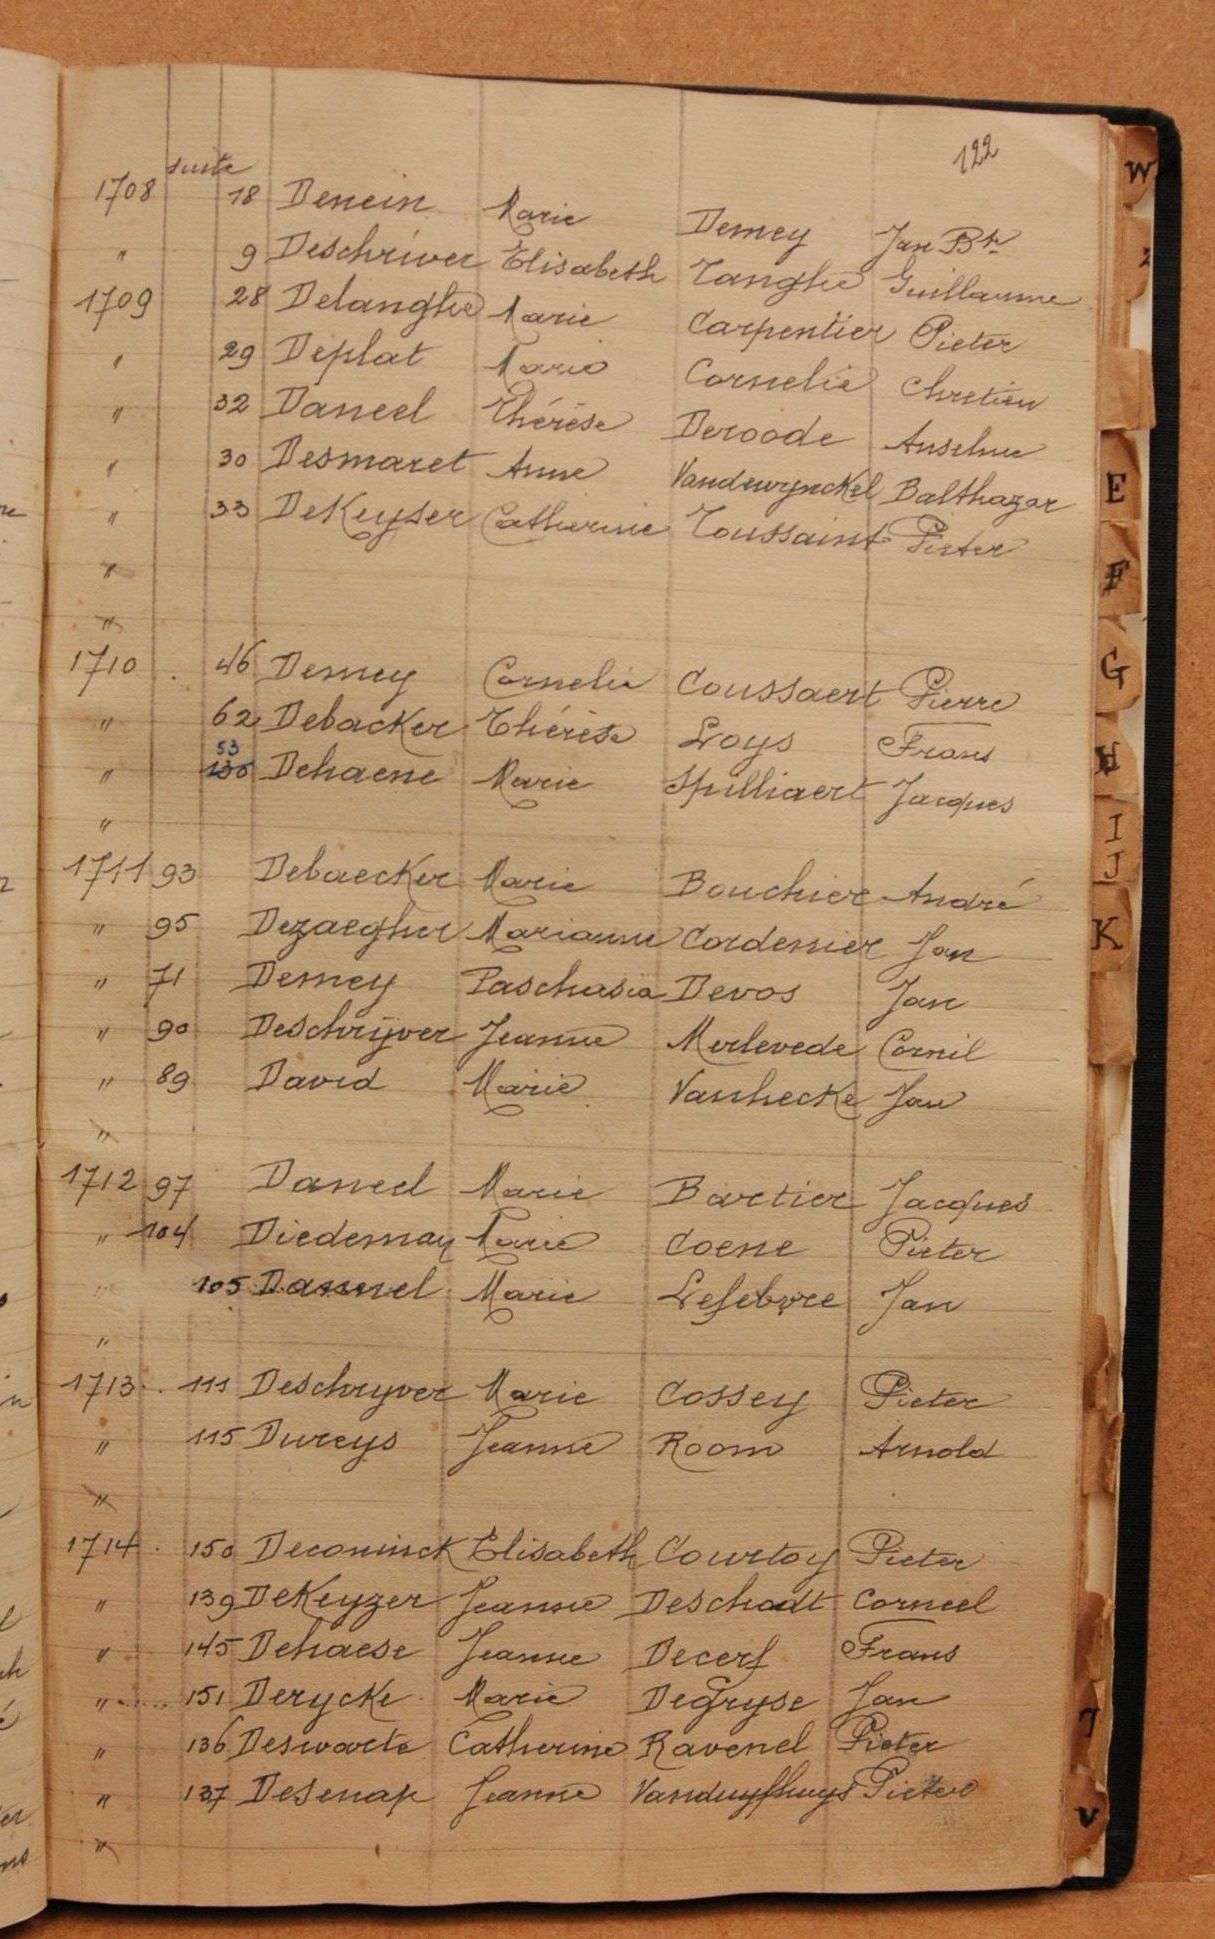 122
suite
1708 18 Denein Marie Demey Jan Bte
" 9 Deschriver Elisabeth Tanghe Guillaume
1709 28 Delanghe Marie Carpentier Pieter
" 29 Deplat Marie Cornelie Chretien
" 32 Daneel Thérèse Deroode Anselme
" 30 Desmaret Anne Vandewynckel Balthazar
" 33 DeKeyser Catherine Toussaint Pieter
"
"
1710 46 Demey Cornelie Coussaert Pierre
" 62 Debacker Thérèse Loys Frans
53
" 136 Dehaene Marie Spilliaert Jacques
"
1711 93 Debaecker Marie Bouchier André
" 95 Dezaegher Marianne Cordenier Jan
" 71 Demey Paschasia Devos Jan
" 90 Deschrijver Jeanne Merlevede Cornil
" 89 David Marie Vanhecke Jan
"
1712 97 Daneel Marie Bartier Jacques
" 104 Diedeman Marie Coene Pieter
" 105 Dannel Marie Lefebvre Jan
"
1713 111 Deschryver Marie Cossey Pieter
" 115 Dureys Jeanne Room Arnold
"
1714 150 Deconinck Elisabeth Courtoy Pieter
" 139 DeKeyzer Jeanne Deschodt Corneel
" 145 Dehaese Jeanne Decerf Frans
" 151 Derycke Marie Degryse Jan
" 136 Deswarte Catherine Ravenel Pieter
" 137 Desenap Jeanne Vanduyfhuys Pieter
"
W
Z
E
F
G
H
I
J
K
V